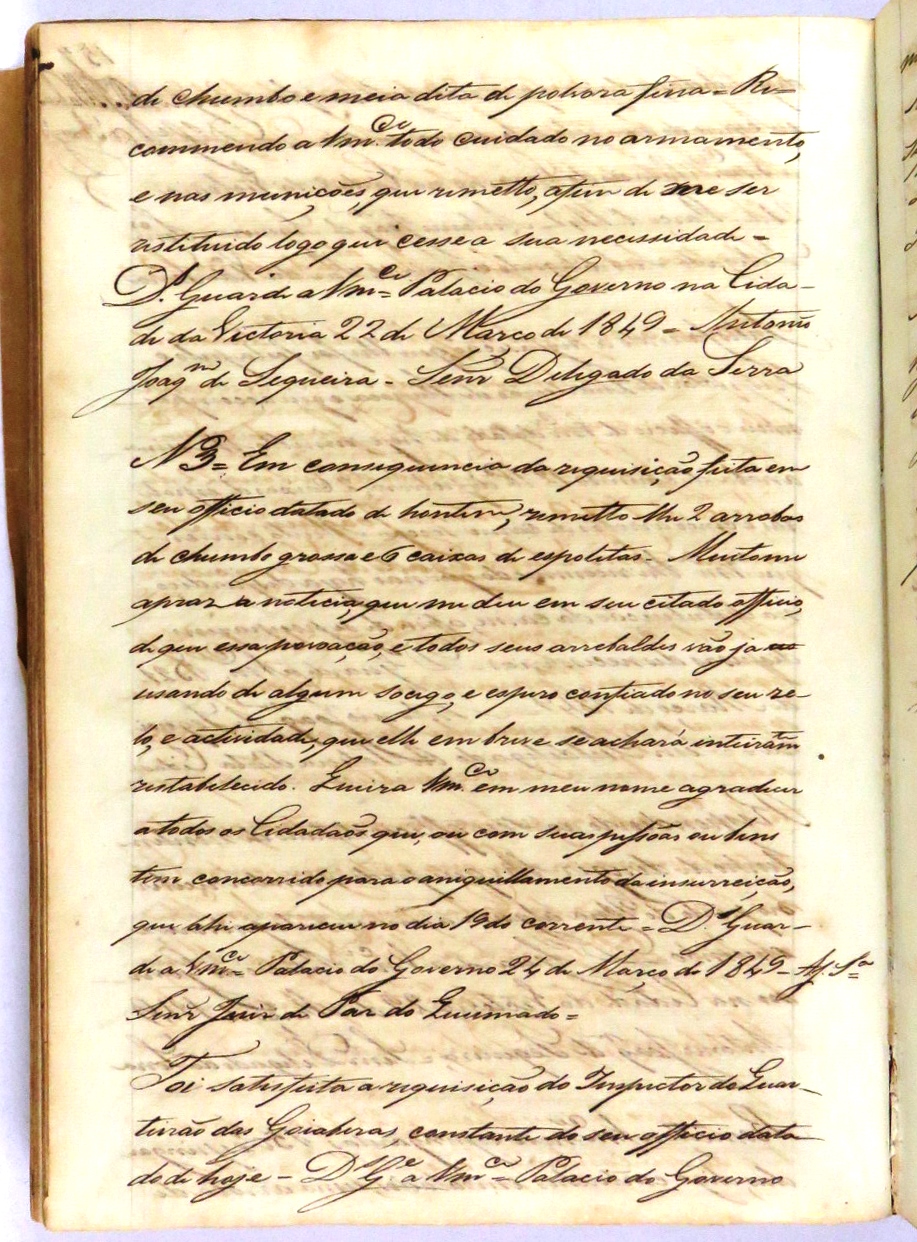 de chumbo e meia dita de polvora fina = Re=
commendo a Vm.ce todo cuidado no armamento,
e nas munições, que remetto, afim de me ser
restituido logo que cesse a sua necessidade =
D.s Guarde a Vm.ce = Palacio do Governo na Cida-
de da Victoria 22 de Março de 1849 = Antonio
Joaqm de Sequeira - Senr Delegado da Serra
N 3 = Em consequencia da requisição feita em
seu officio datado de hontem, remetto lhe 2 arrobas
de chumbo grosso e 6 caixas de espoletas - Muito me
apraz a noticia, que me deu em seu citado officio,
de que essa povoação, e todos seus arrebaldes vão ja
usando de algum socego, e espero confiado no seu ze-
lo, e actividade, que elle em breve se achará inteiramte
restabelecido. Queira Vm.ce em meu nome agradecer
a todos os Cidadãos que, ou com suas pessôas ou bens
tem concorrido para o aniquillamento da insurreição,
que ahi appareceu no dia 19 do corrente = D.s Guar-
de a Vm.ce = Palacio do Governo 24 de Março de 1849 -
Senr Juiz de Paz do Queimado =
Foi satisfeita a requisição do Inspector do Quar-
teirão das Goiabeiras, constante do seu officio data
do de hoje - D.s G.e a Vm.ce = Palacio do Governo